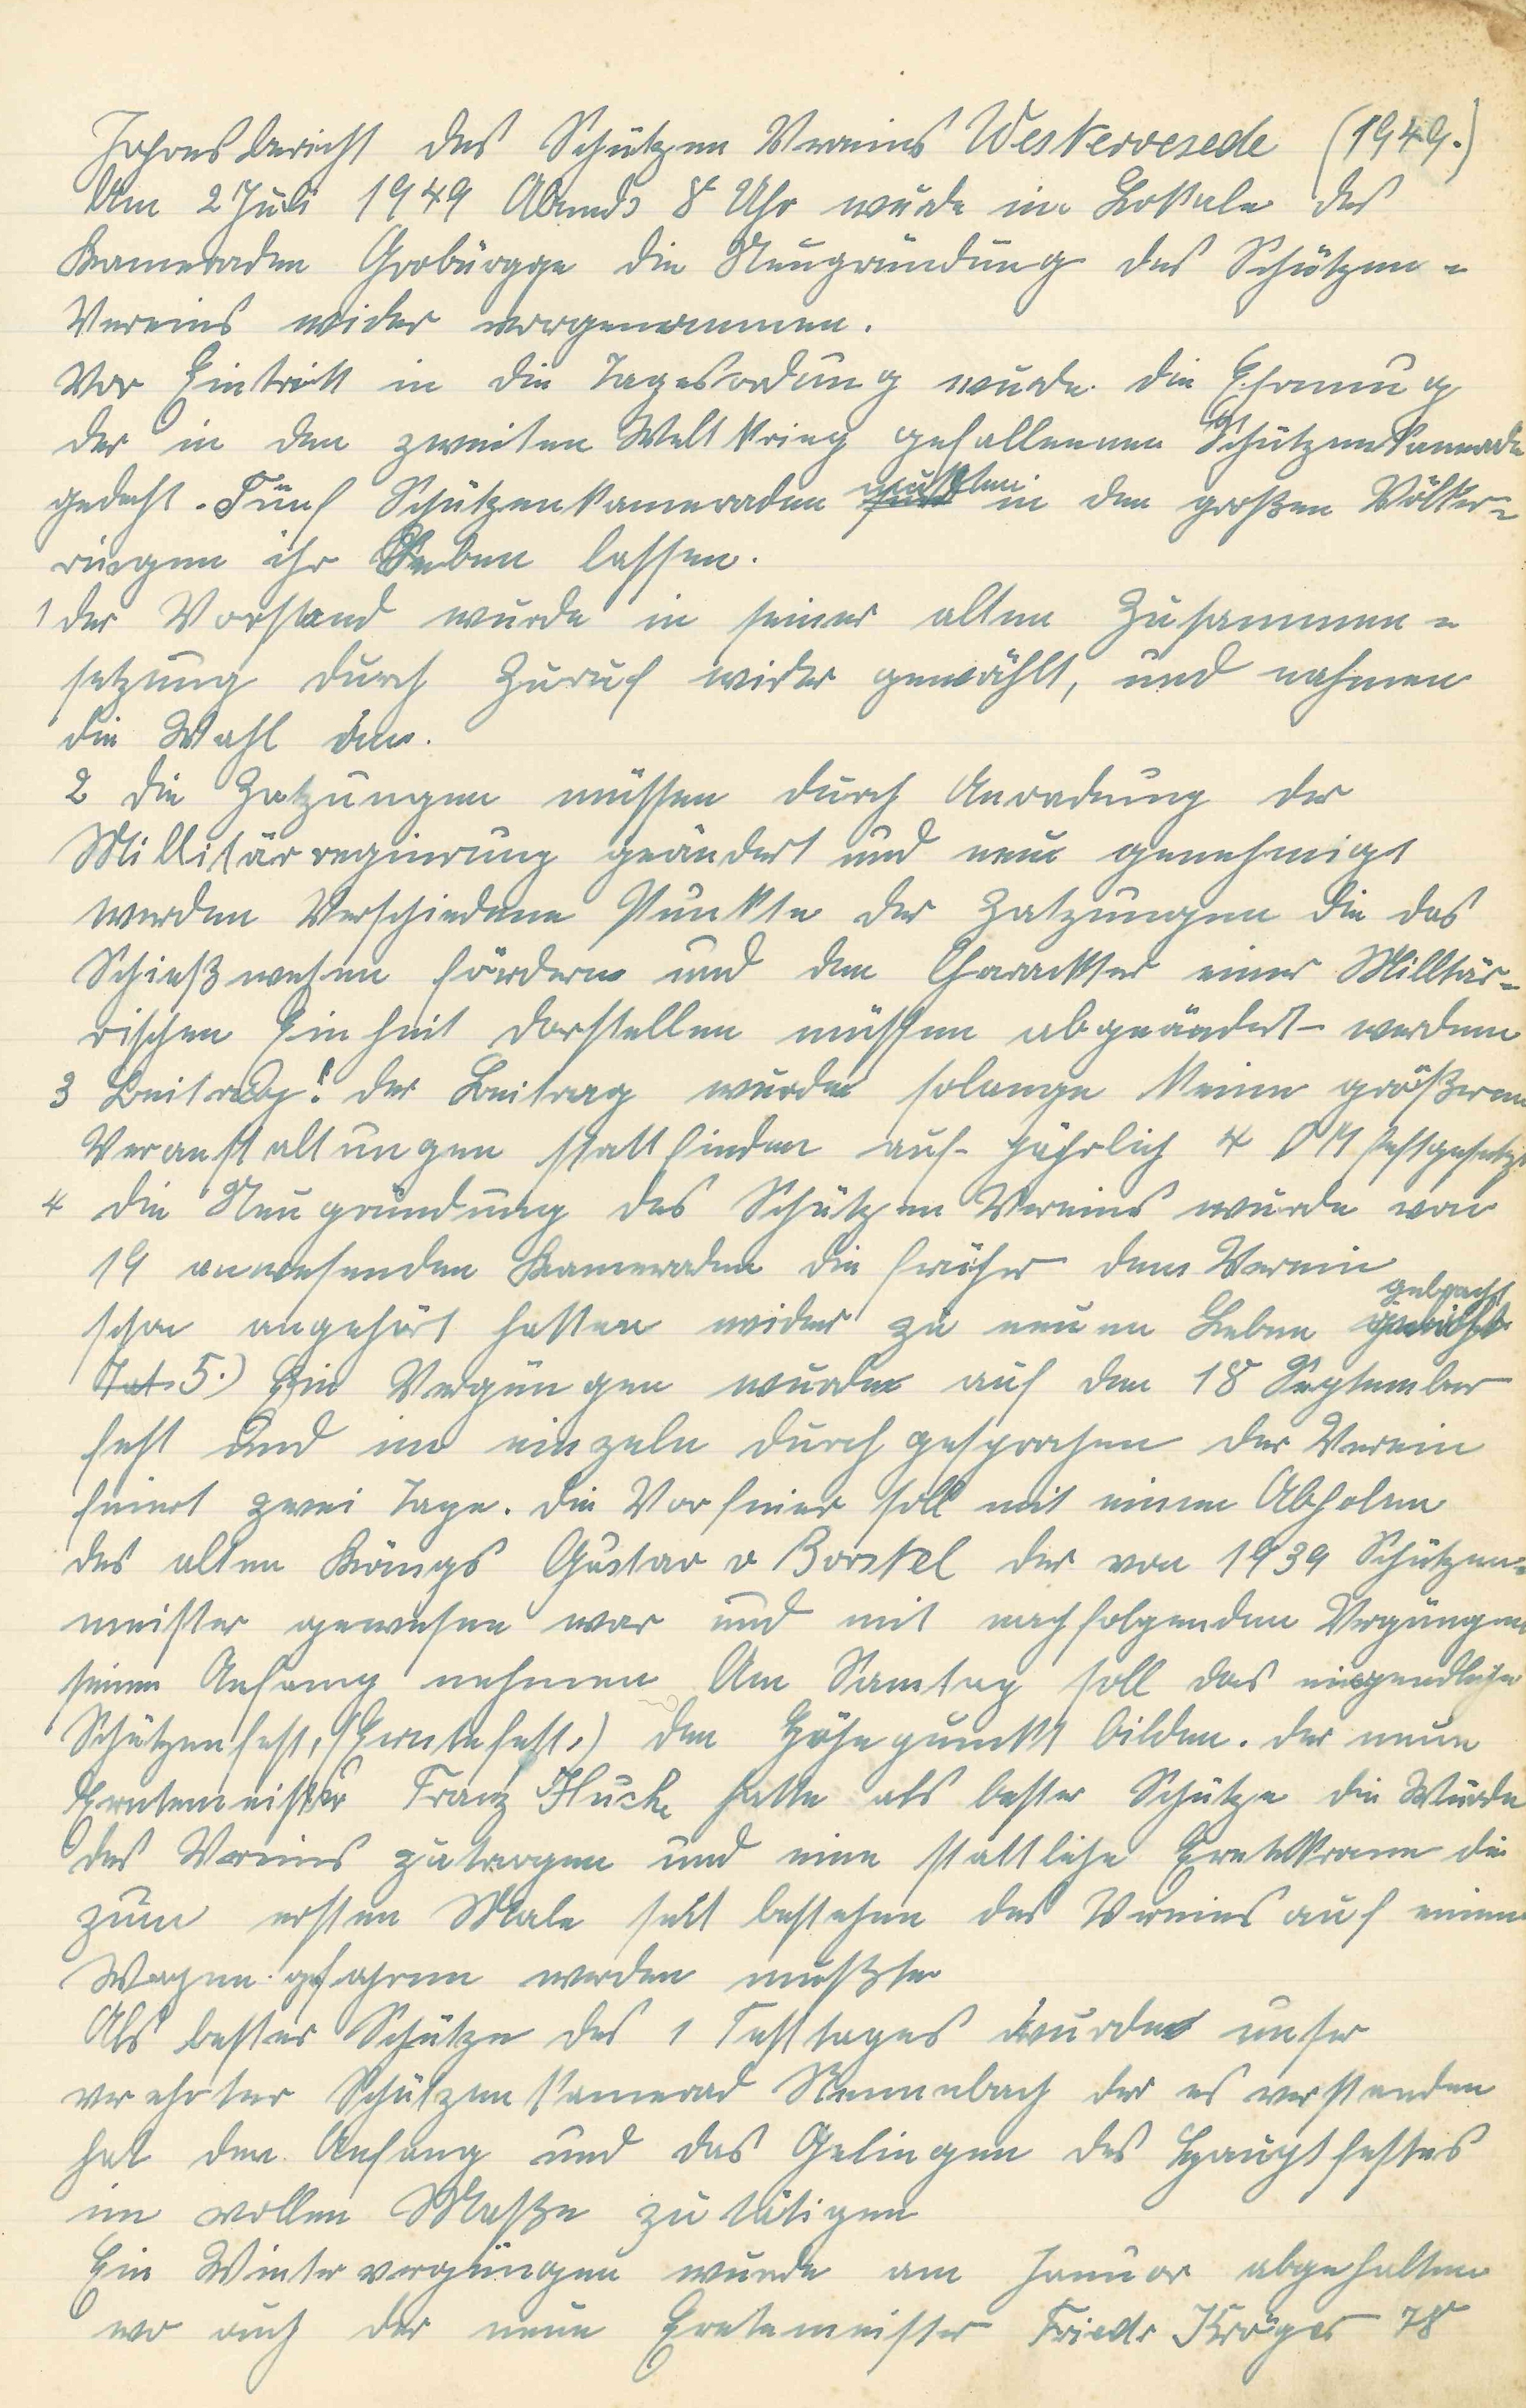 Jahresbericht des Schützen Vereins Westervesede (1949.)
Am 2 Juli 1949 Abends 8 Uhr wurde im Lokale des
Kameraden Grobürgge die Neugründung des Schützen-
Vereins wider vorgenommen.
Vor Eintritt in die Tagesordung wurde die Ehrung
der in den zweiten Weltkrieg gefallenen Schützenkamerade
gedacht. Fünf Schützenkameraden mußten in den großen Völker-
ringen ihr Leben lassen.
1 der Vorstand wurde in seiner alten Zusammen-
setzung durch Zuruf wider gewählt, und nahmen
die Wahl an.
2 die Zatzungen müssen durch Anordnung der
Millitärregierung geändert und neu genehmigt
werden Verschiedene Punkte der Zatzungen die das
Schießwesen fördern und den Charackter einer Militär-
rischen Einheit darstellen müssen abgeändert werden
3 Beitrag! der Beitrag wurde solange keine größeren
Veranstaltungen stattfinden auf jährlich 4 DM festgesetzt
4 die Neugründung des Schützen Vereins wurde von
19 anwesenden Kameraden die früher dem Verein
schon angehört hatten wider zu neuen Leben gebracht
5.) Ein Vergüngen wurde auf den 18 September
fest und im einzeln durchgesprochen der Verein
feiert zwei Tage. die Vorfeier soll mit einem Abholen
des alten Köngs Gustav v Borstel der von 1939 Schützen-
meister gewesen war und mit nachfolgenden Vergüngen
seinen Anfang nehmen Am Samtag soll das eigendliche
Schützenfest, (Erntefest,) den Höhepunkt bilden. der neue
Erntemeister Franz Hucke hatte als bester Schütze die Würde
des Vereins zutragen und eine stattliche Erntekrone die
zum ersten Male seit bestehen des Vereins auf einen
Wagen gefahren werden mußte
Als bester Schütze des 1 Festtages wurde unser
verehrter Schützenkamerad Rennebach der es verstanden
hat den Anfang und das Gelingen des Hauptfestes
im vollen Maße zu tätigen
Ein Wintervergüngen wurde am Januar abgehalten
wo auch der neue Erntemeister Friedr Kröger 78